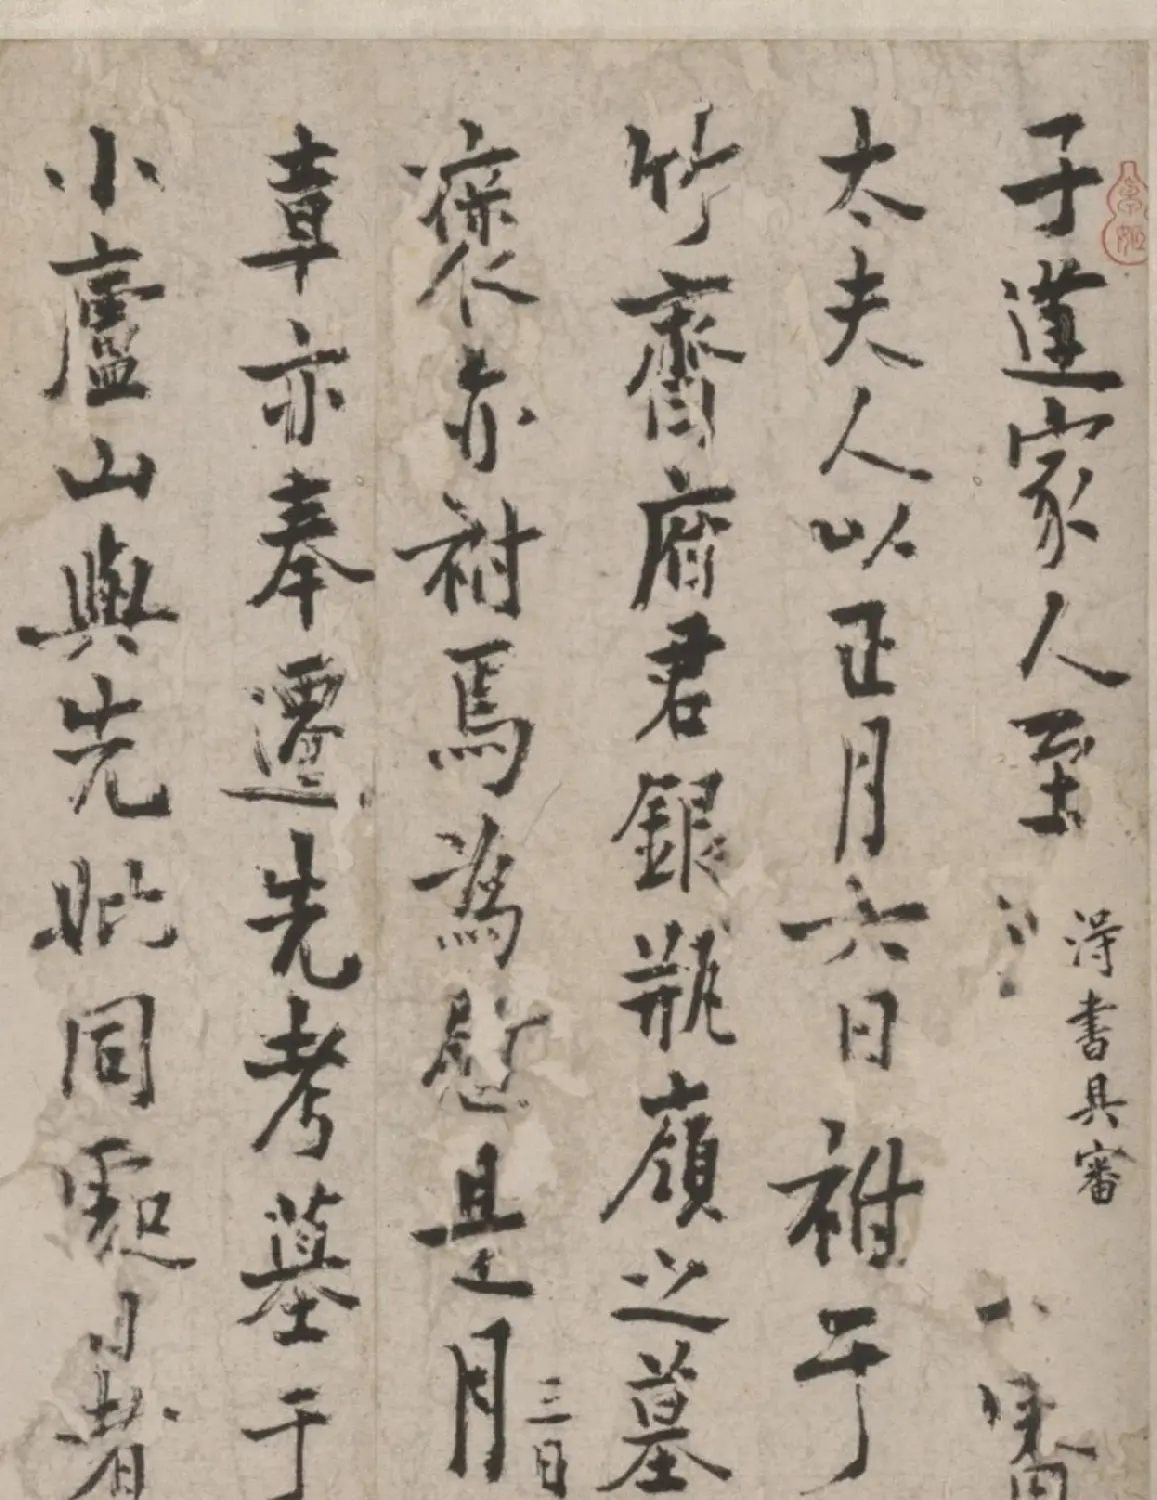 子達家人至得書具審
太夫人以正月六日祔于
竹齋府君銀瓶嶺之墓
褒亦祔焉為慰是月三日
章亦奉遷先考墓于
小廬山與先妣同處